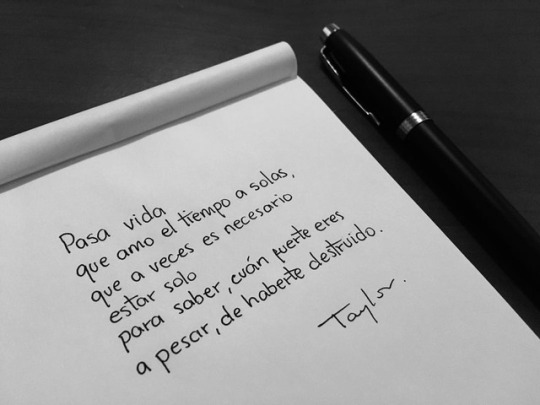 Pasa vida
que amo el tiempo a solas,
que a veces es necesario
estar solo
para saber, cuán fuerte eres
a pesar, de haberte destruido.
Taylor.